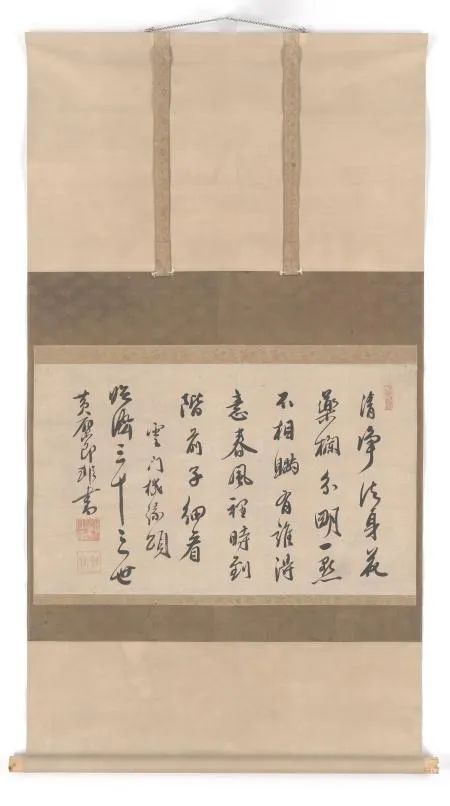 清淨法身花
藥欄分明一點
不相瞞有誰得
意春風裡時到
階前子細看
雲门機緣頌
臨濟三十三世
黄檗即非書